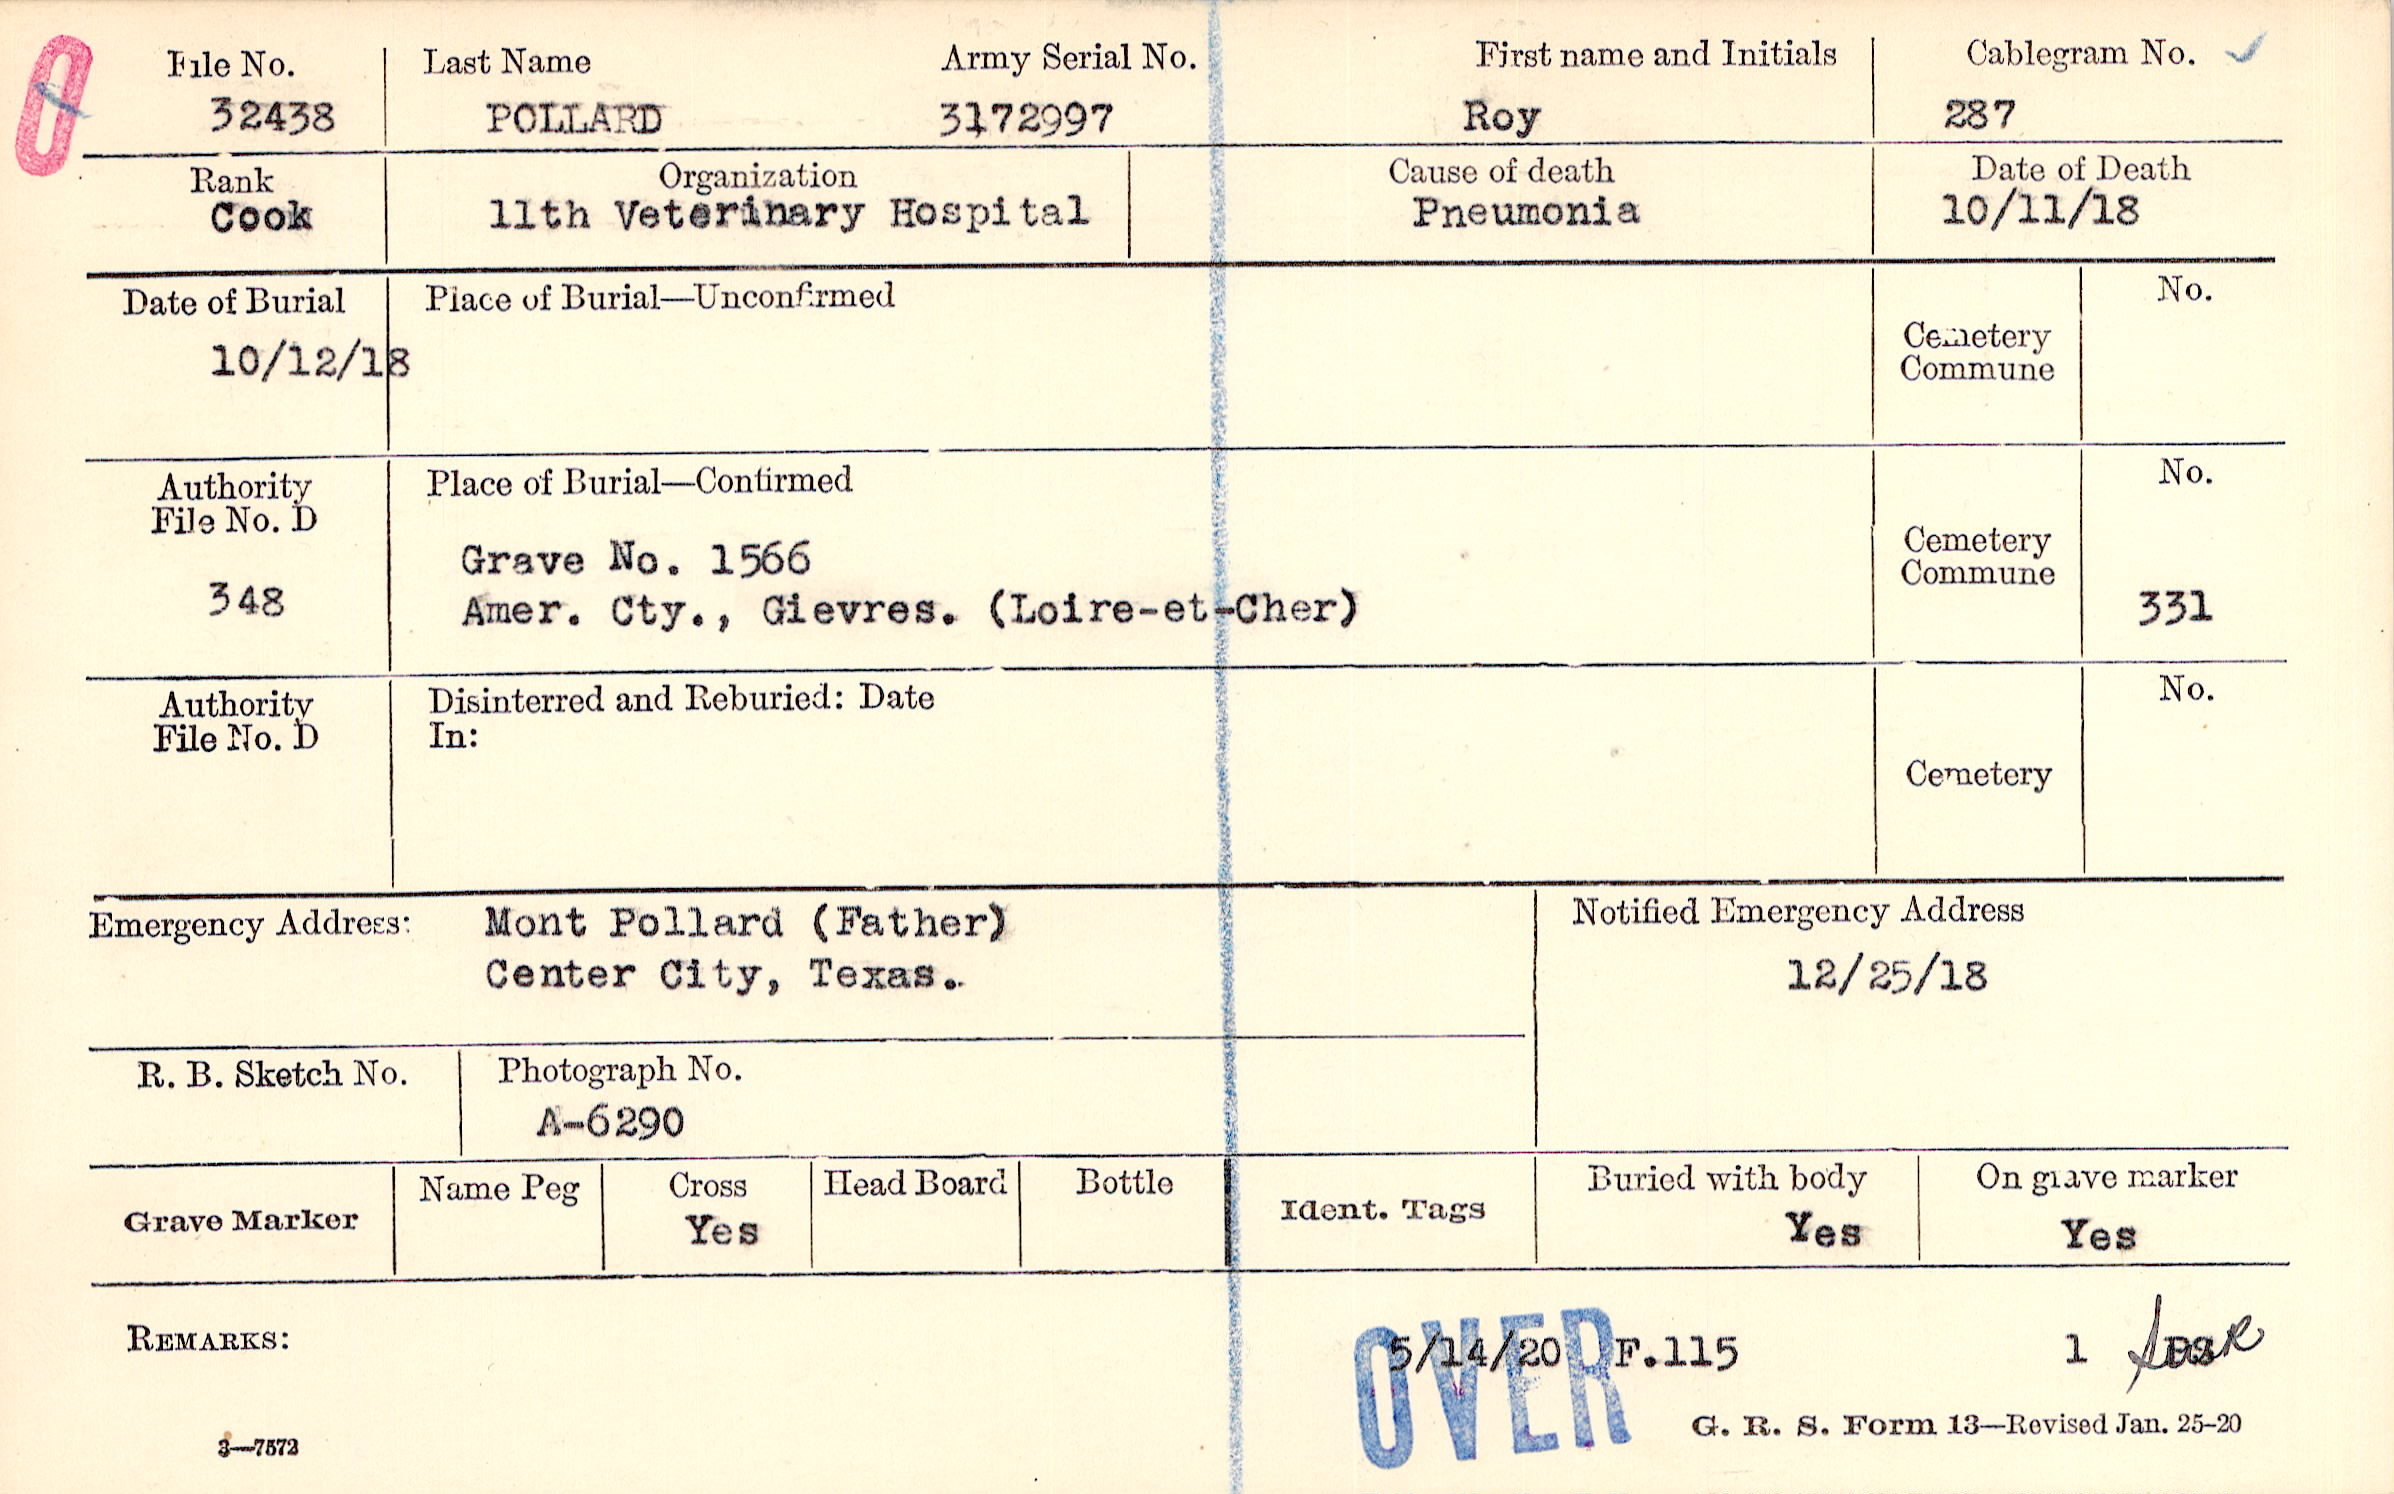 File No. Last Name Army Serial No. First name and Initials Cablegram No.
32438 POLLARD 3172997 Roy 287
Rank Organization Cause of death Date of Death
Cook 11th Veterinary Hospital Pneumonia 10/11/18
Date of Burial Place of Burial—Unconfirmed No.
10/12/18
Cemetery
Commune
Authority
File No. D
Place of Burial—Confirmed No.
348
Grave No. 1566
Amer. Cty., Gievres. (Loire-et-Cher)
Cemetery
Commune
331
Authority
File No. D
Disinterred and Reburied: Date
In:
No.
Cemetery
Emergency Address: Mont Pollard (Father)
Center City, Texas.
Notified Emergency Address
12/25/18
R. B. Sketch No. Photograph No.
A-6290
Grave Marker
Name Peg Cross Head Board Bottle
Yes
Ident. Tags
Buried with body On grave marker
Yes Yes
REMARKS:
5/14/20 F.115 1
OVER
3—7572
G. R. S. Form 13—Revised Jan. 25-20